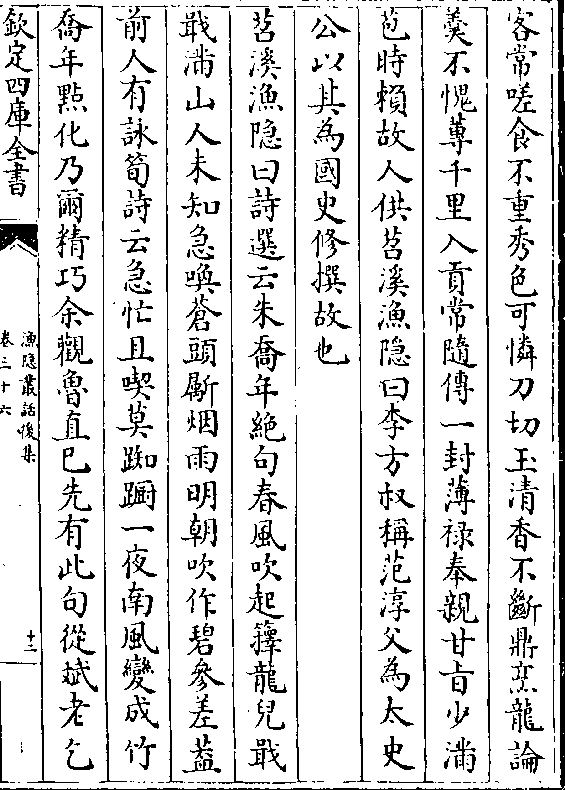 客常嗟食不重秀色可憐刀切玉清香不斷鼎烹龍論
羮不愧蓴千里入貢常隨傳一封薄禄奉親甘㫖少滿
苞時賴故人供苕溪漁隠曰李方叔稱范淳父為太史
公以其為國史修撰故也
苕溪漁隠曰詩選云朱喬年絶句春風吹起籜龍兒戢
戢滿山人未知急喚蒼頭斸烟雨明朝吹作碧參差葢
前人有詠筍詩云急忙且喫莫踟蹰一夜南風變成竹
喬年㸃化乃爾精巧余觀魯直已先有此句從斌老乞
欽定四庫全書
漁隠叢話後集
卷三十六
十三